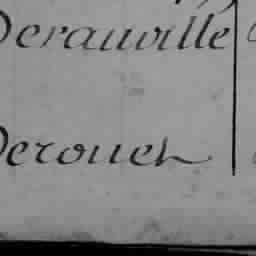 Derauville
Derouet